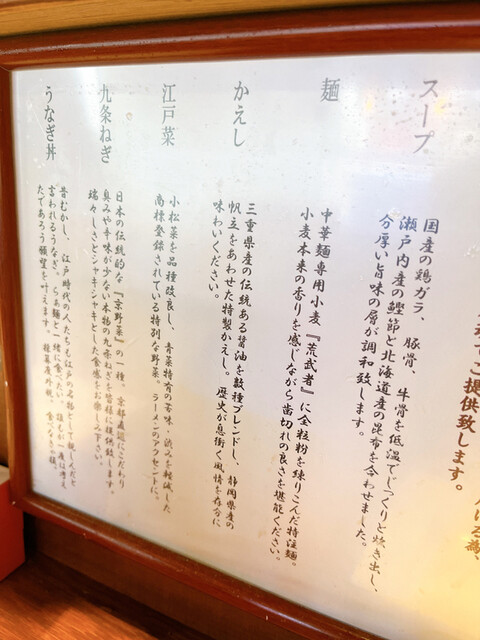 ご提供致します。
スープ
国産の鶏ガラ、豚骨、牛骨を低温でじっくりと炊き出し、
瀬戸内産の鰹節と北海道産の昆布を合わせました。
分厚い旨味の層が調和致します。
麺
中華麺専用小麦『荒武者』に全粒粉を練りこんだ特注麺。
小麦本来の香りを感じながら歯切れの良さを堪能ください。
かえし
三重県産の伝統ある醤油を数種ブレンドし、静岡県産の
帆立をあわせた特製かえし。歴史が息衝く風情を存分に
味わいください。
江戸菜
小松菜を品種改良し、青菜特有の苦味・渋みを軽減した
商標登録されている特別な野菜。ラーメンのアクセントに。
九条ねぎ
日本の伝統的な『京野菜』の一種。京都直送にこだわり
臭みや辛味が少ない本物の九条ねぎを皆様に提供致します。
瑞々しさとシャキシャキとした食感をお楽しみ下さい。
うなぎ丼
昔むかし、江戸時代の人たちも江戸の名物として親しんだと
言われるうなぎ。らぁ麺と一緒に食べたい。誰もが一度は考え
たであろう願望を叶えます。